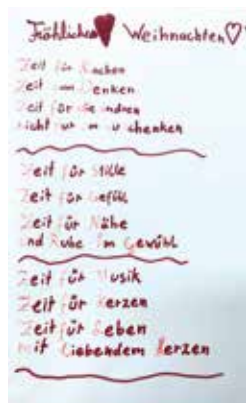 Fröhliche Weihnachten
Zeit für Kuchen
Zeit zum Denken
Zeit für die andren
nicht nur im schenken
Zeit für Stille
Zeit für Gefühl
Zeit für Nähe
und Ruhe im Gewühl
Zeit für Musik
Zeit für Kerzen
Zeit für Leben
mit Liebendem Herzen